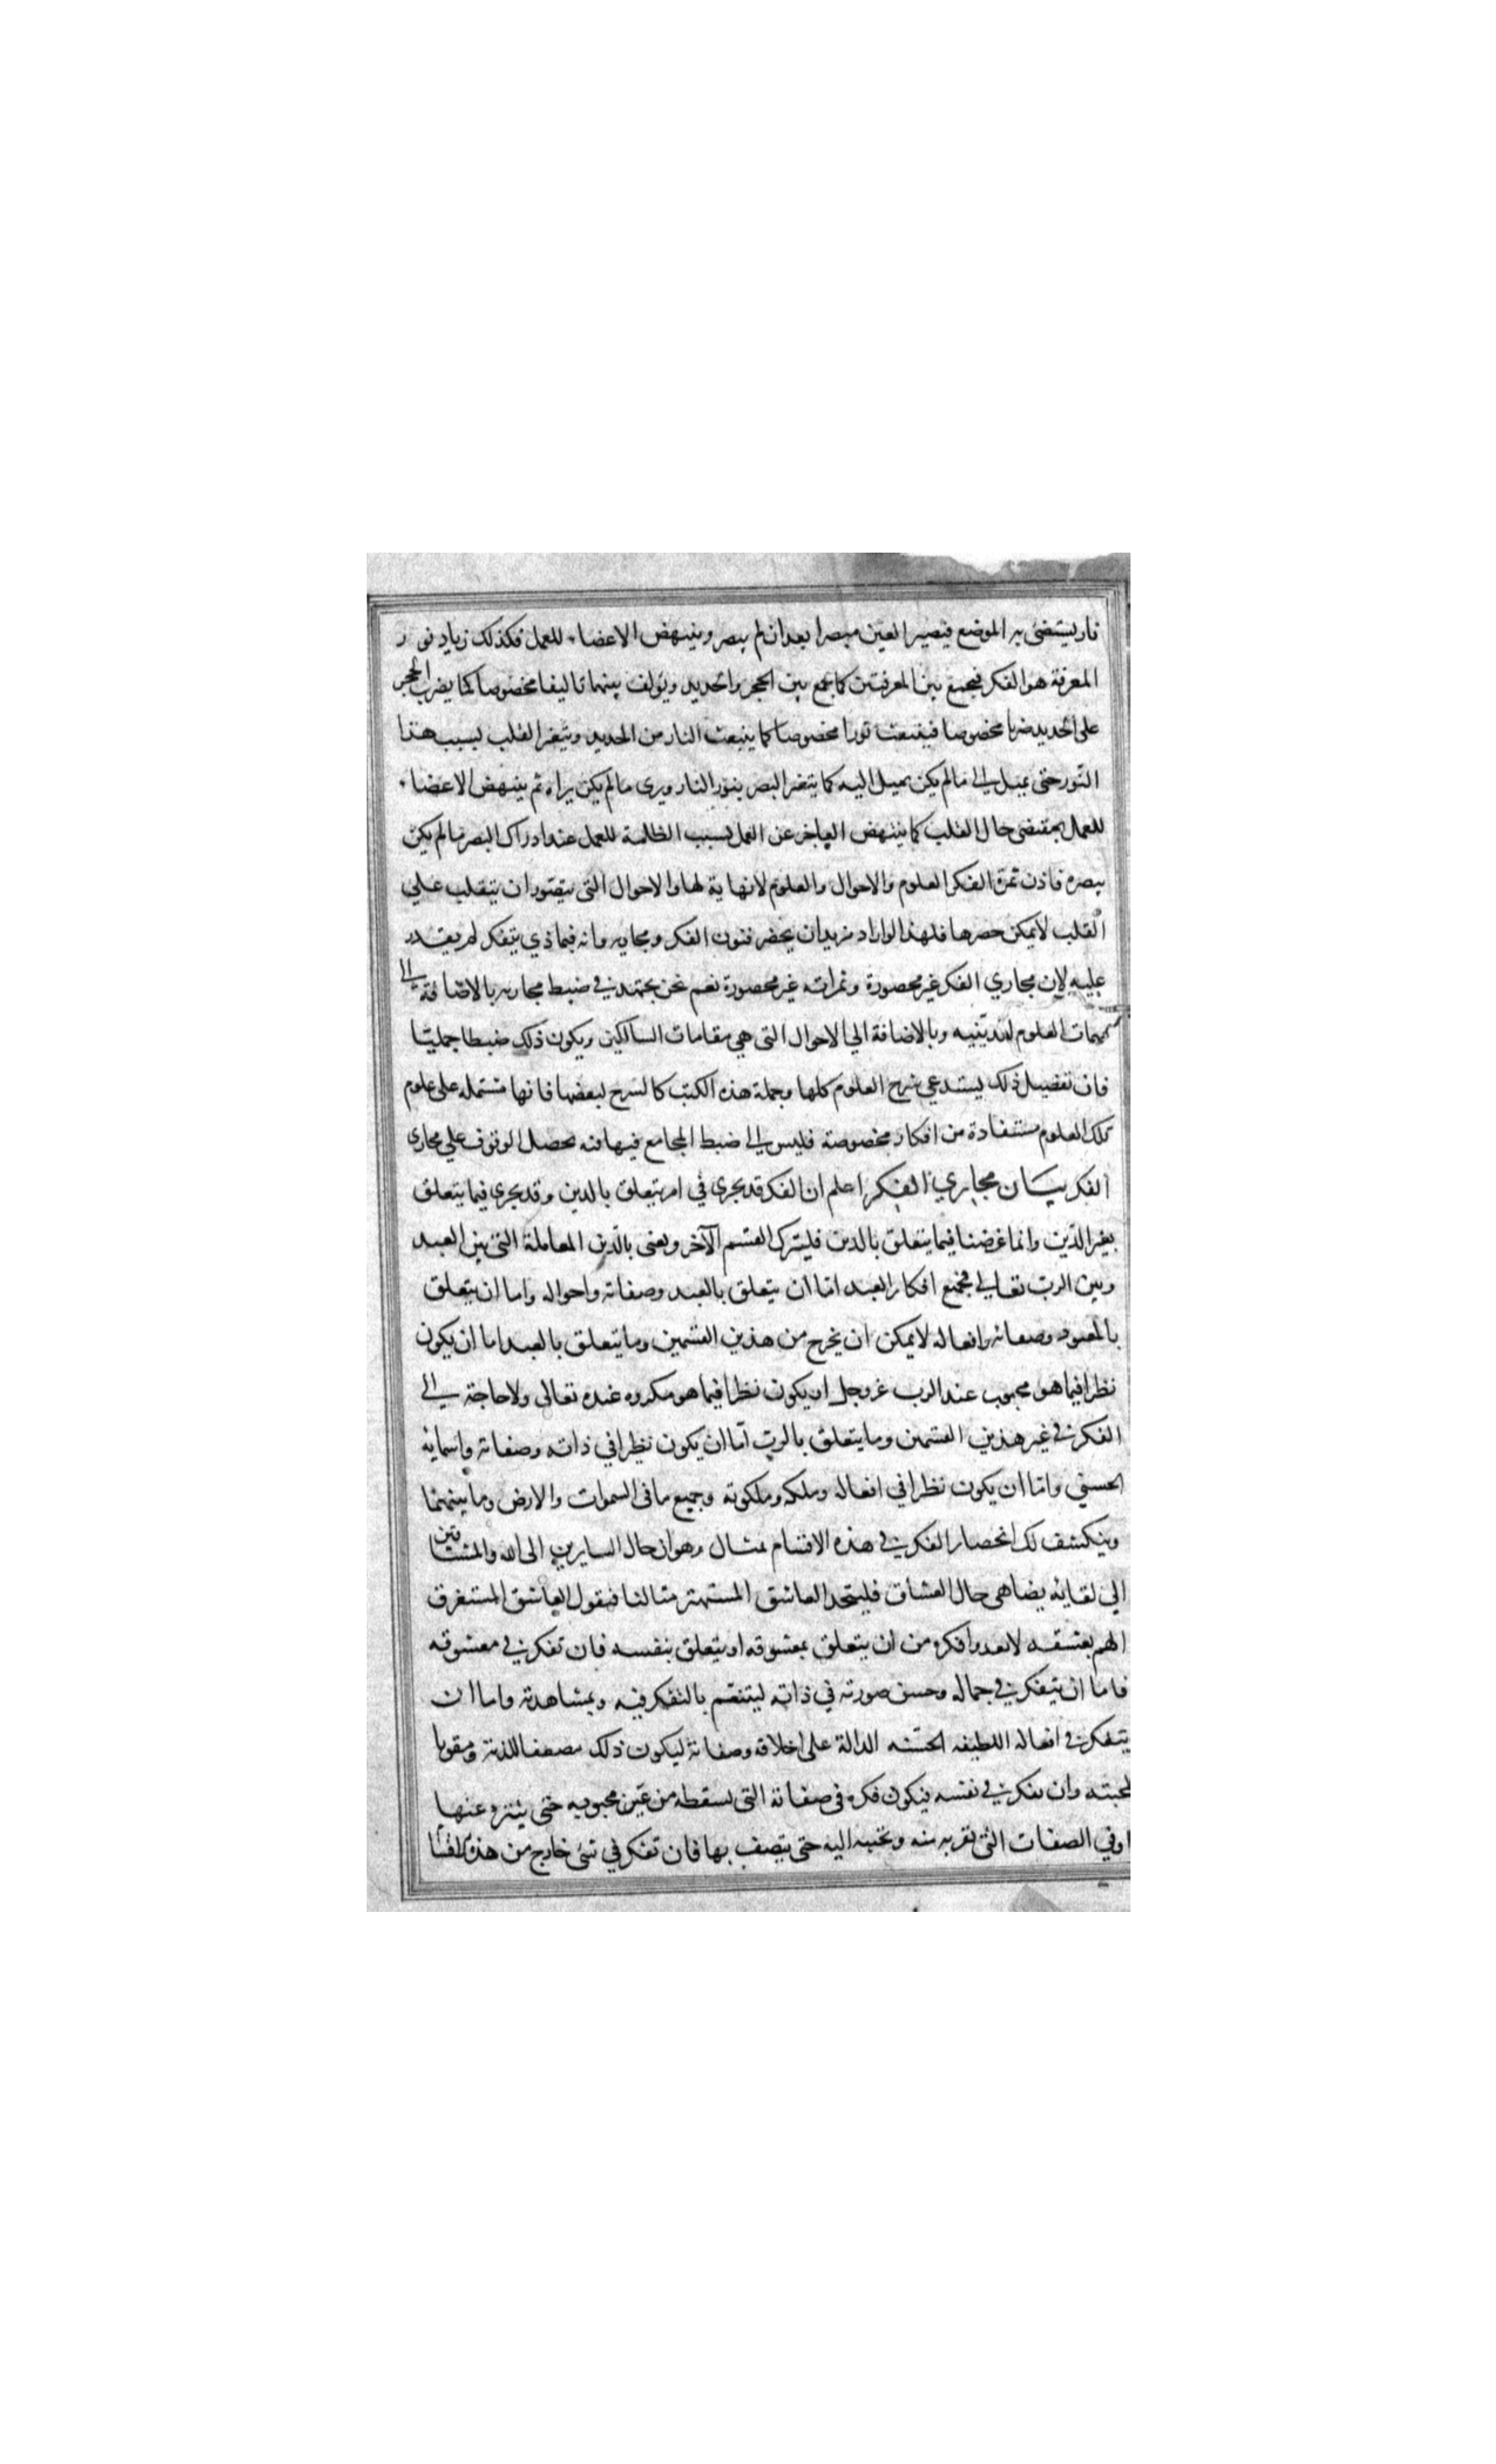 نار يستضئ به الموضع فيصير العين مبصرا بعد ان لم يبصر وينتهض الاعضاء للعمل فكذلك زياد نور
المعرفة هو الفكر فيجمع بين المعرفتين كما يجمع بين الحجر والحديد ويؤلف بينهما تاليفا مخصوصا كما يضرب الحجر
على الحديد ضربا مخصوصا فينبعث نورا مخصوصا كما ينبعث النار من الحديد ويتغير القلب بسبب هذا
النور حتى يميل الى مالم يكن يميل اليه كما يتغير البصر بنور النار ويرى مالم يكن يراه ثم ينتهض الاعضاء
للعمل بمقتضى حال القلب كما ينتهض العاجز عن العمل بسبب الظلمة للعمل عند ادراك البصر مالم يكن
يبصره فاذن ثمرة الفكر العلوم والاحوال والعلوم لا نهاية لها والاحوال التي يتصور ان يتقلب علي
القلب لا يمكن حصرها فلهذا لو اراد مريد ان يحصر فنون الفكر ومجاريه وانه فيماذي يتفكر لم يقدر
عليه لان مجاري الفكر غير محصورة وثمراته غير محصورة نعم نحن نجتهد في ضبط مجاريه بالاضافة الى
مهمات العلوم الدينيه وبالاضافة الي الاحوال التي هي مقامات السالكين ويكون ذلك ضبطا جمليا
فان تفصيل ذلك يستدعي شرح العلوم كلها وجملة هذه الكتب كالشرح لبعضها فانها مشتمله على علوم
تلك العلوم مستفادة من افكار مخصوصة فليس الى ضبط المجامع فيها فنه يحصل الوقوف علي مجارى
الفكر بيان مجاري الفكر اعلم ان الفكر قد يجرى في امر يتعلق بالدين وقد يجرى فيما يتعلق
بغير الدين وانما غرضنا فيما يتعلق بالدين فليترك القسم الآخر ونعنى بالدين المعاملة التي بين العبد
وبين الرب تعالى فجميع افكار العبد اما ان يتعلق بالعبد وصفاته واحواله واما ان يتعلق
بالمعبود وصفاته وافعاله لا يمكن ان يخرج من هذين القسمين وما يتعلق بالعبد اما ان يكون
نظرا فيما هو محبوب عند الرب عز وجل او يكون نظرا فيما هو مكروه عنده تعالى ولا حاجة الى
الفكر في غير هذين القسمين وما يتعلق بالرب اما ان يكون نظرا في ذاته وصفاته واسمائه
الحسني واما ان يكون نظرا في افعاله وملكه وملكوته وجميع ما في السموات والارض وما بينهما
وينكشف لك انحصار الفكر في هذه الاقسام بمثال وهو ان حال السايرين الى الله والمشتاقين
الي لقائه يضاهى حال العشاق فليتخذ العاشق المستهتر مثالنا فيقول العاشق المستغرق
الهم بعشقه لا يعدوا فكره من ان يتعلق بمعشوقه او يتعلق بنفسه فان تفكر في معشوقه
فاما ان يتفكر في جماله وحسن صورته في ذاته ليتنعم بالتفكر فيه وبمشاهدته واما ان
يتفكر في افعاله اللطيفه الحسنه الدالة على اخلاقه وصفاته ليكون ذلك مضعفا للذته ومقويا
لمحبته وان تفكر في نفسه فيكون فكره في صفاته التي تسقطه من عين محبوبه حتى يتنزه عنها
او في الصفات التي تقربه منه وتحببه اليه حتى يتصف بها فان تفكر في شئ خارج من هذه الاقسا